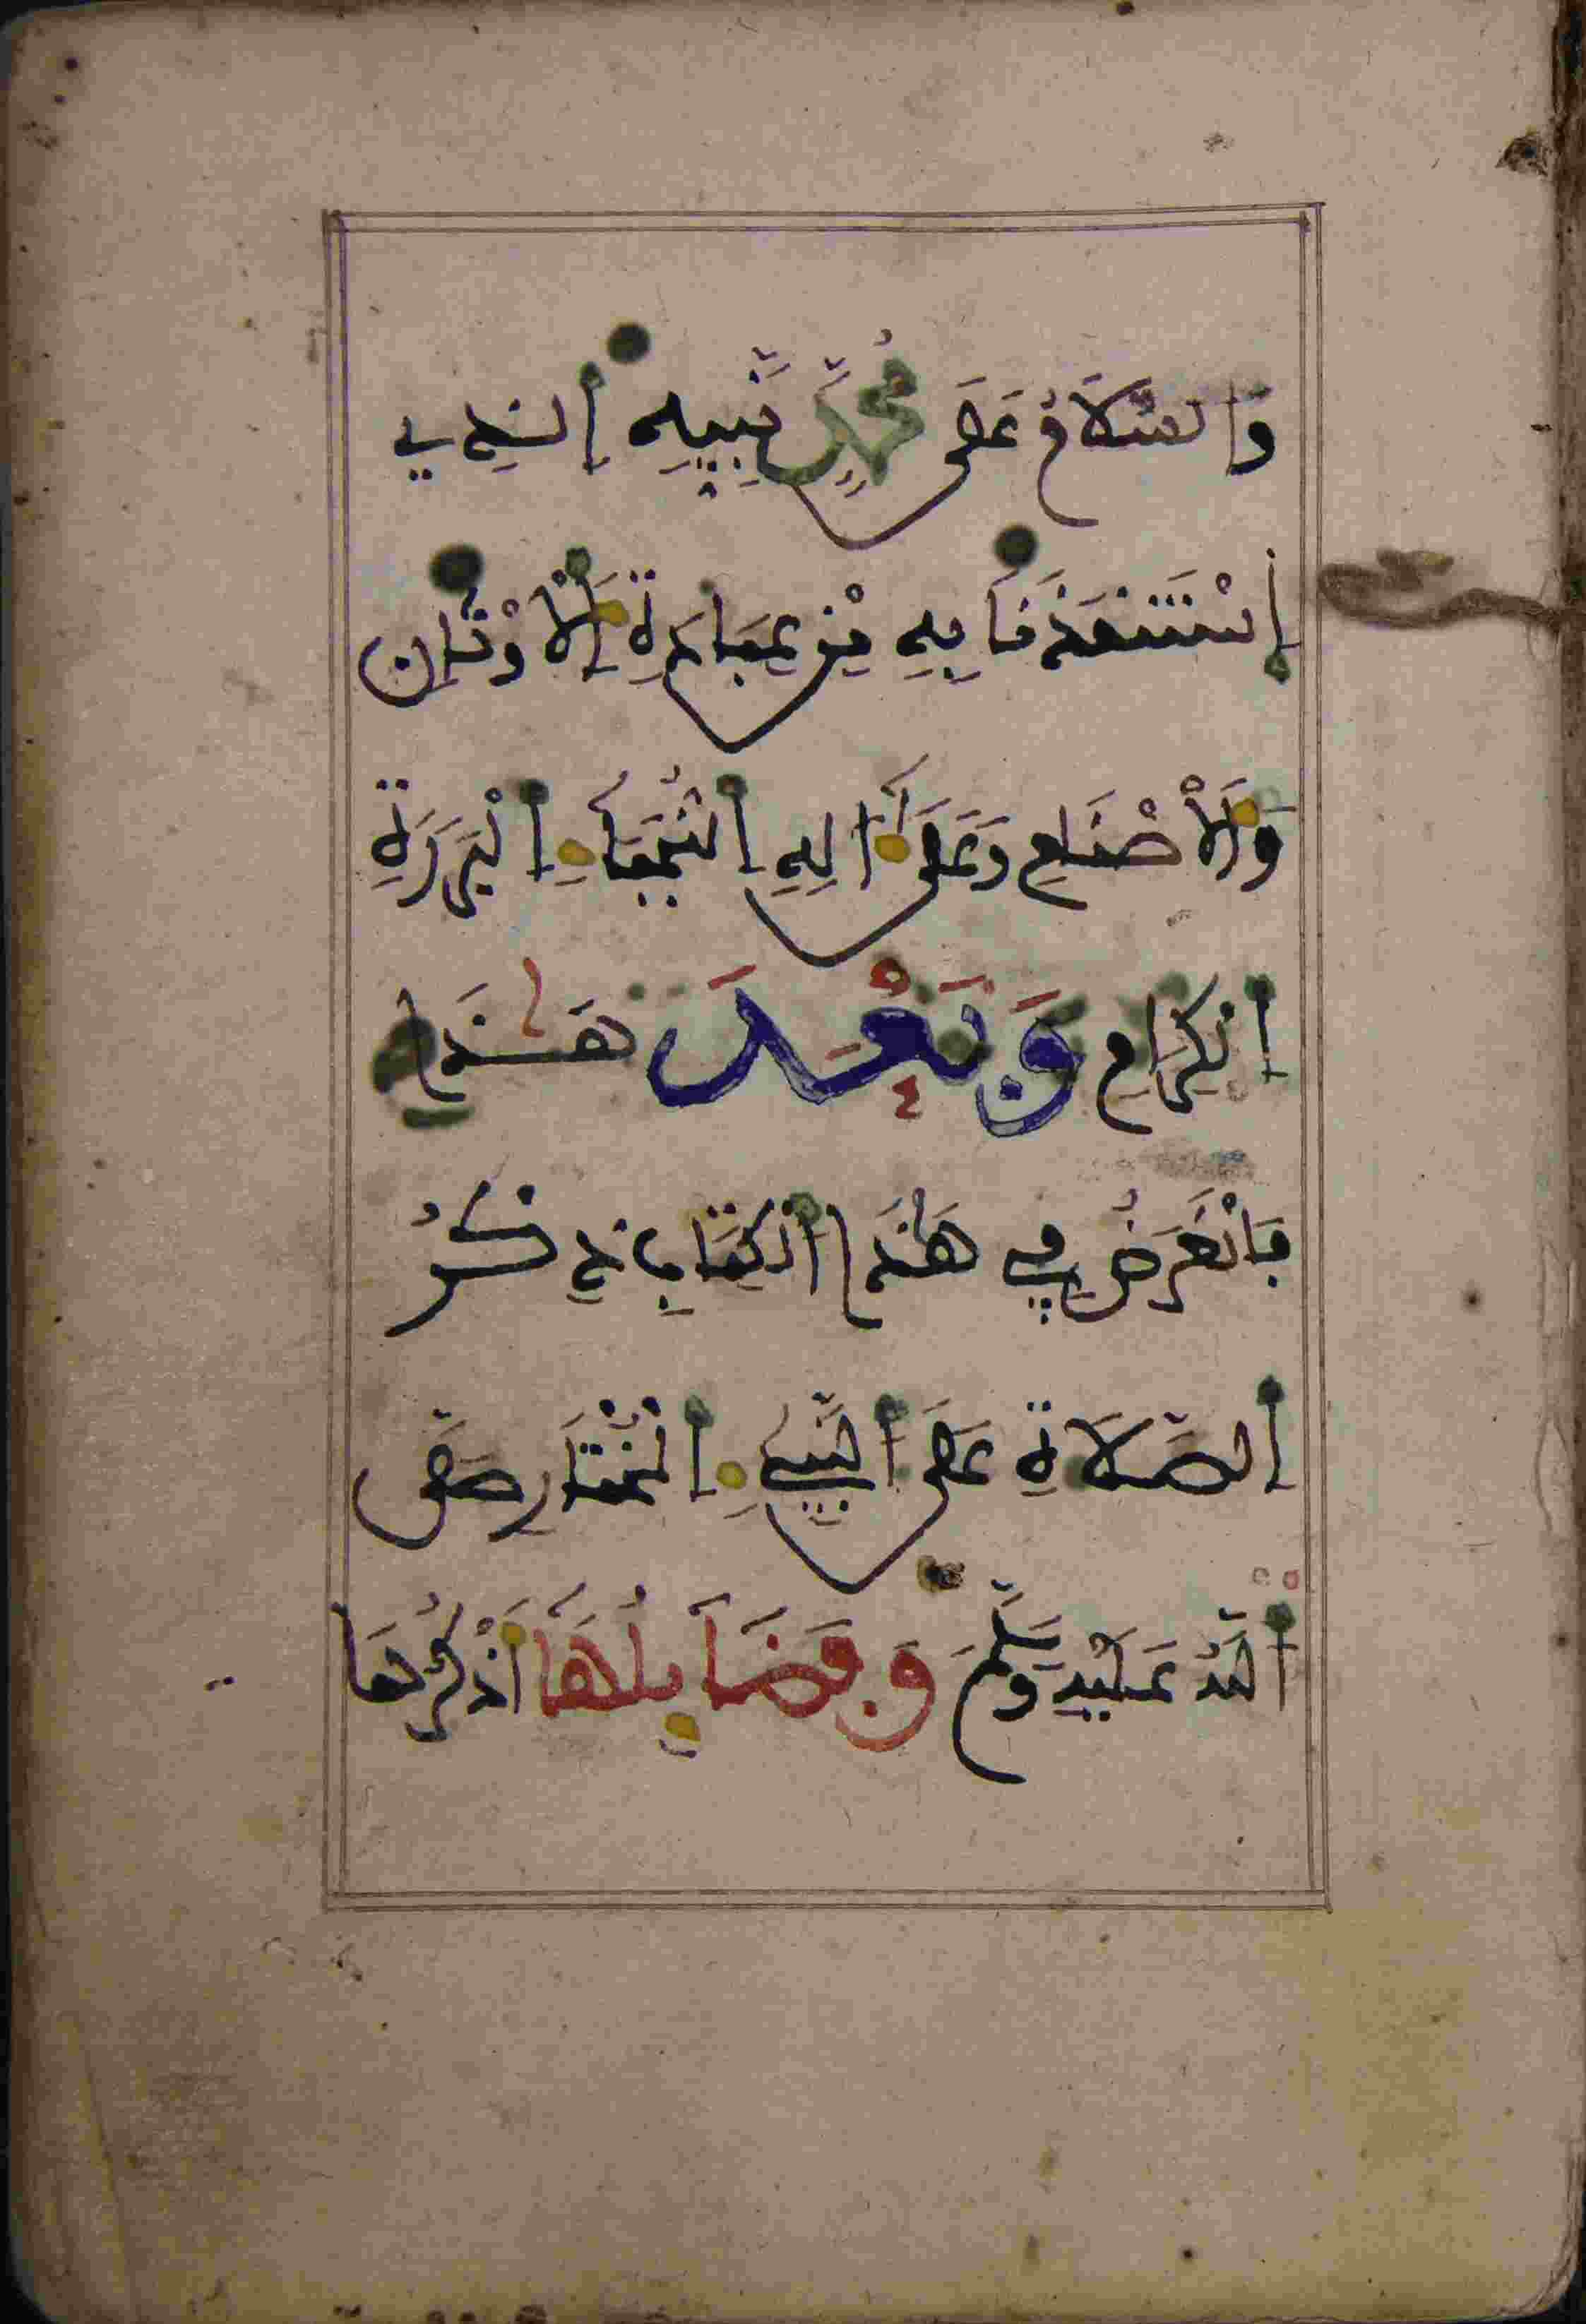 وَالسَّلَامُ عَلَى مُحَمَّدٍ نَّبِيِّهِ اِ۬لذِي
اِ۪سْتَنقَذَنَا بِهِ مِنْ عِبَادَةِ اِ۬لَاوْثَانِ
وَالَاصْنَامِ وَعَلَى ءَالِهِ اِ۬لنُّجَبَاءِ اِ۬لْبَرَرَةِ
اِ۬لْكِرَامِ وَبَعْدَ هَٰذَا
فَالْغَرَضُ فِي هَٰذَا اَ۬لْكِتَابِ ذِكْرُ
اِ۬لصَّلَاةِ عَلَى اَ۬لنَّبِيءِ اِ۬لْمُخْتَارِ صَلَّى
اَ۬للَّهُ عَلَيْهِ وَسَلَّمَ وَفَضَائِلُهَا أَذْكُرُهَا